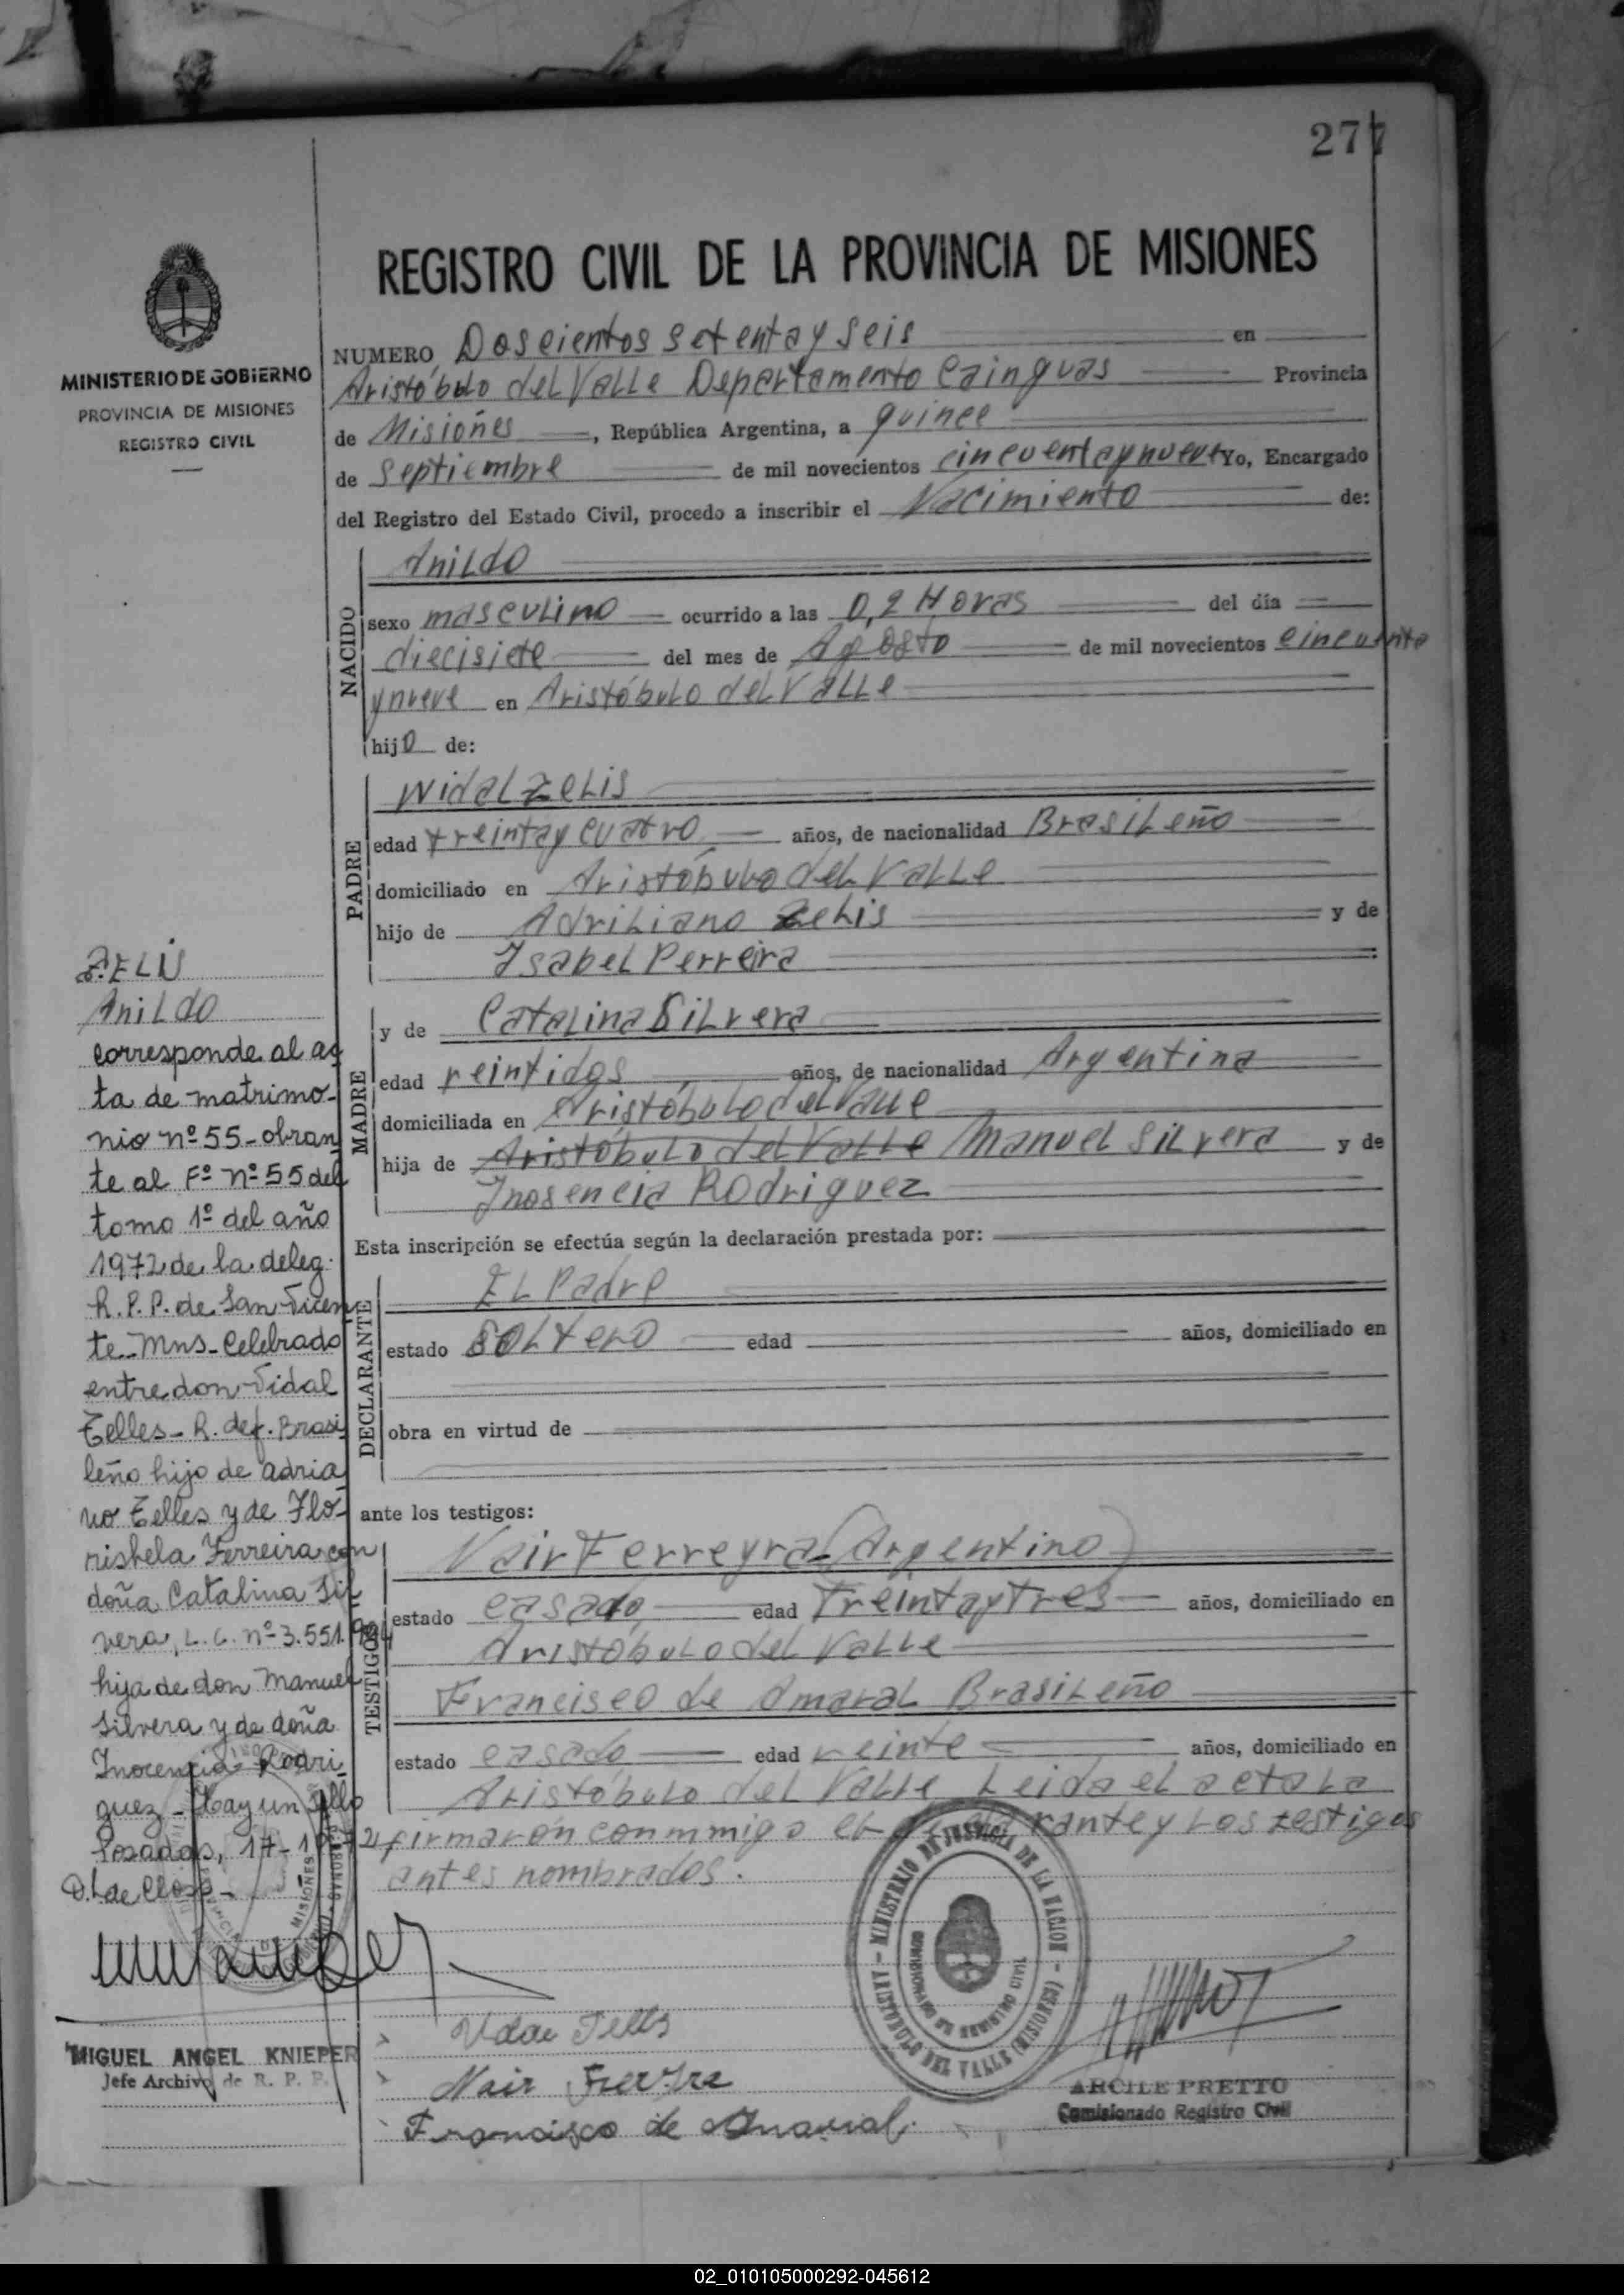 277
REGISTRO CIVIL DE LA PROVINCIA DE MISIONES
MINISTERIO DE GOBIERNO
PROVINCIA DE MISIONES
REGISTRO CIVIL
NUMERO Doscientos setenta y seis en
Aristóbulo del Valle Departamento Cainguas Provincia
de Misiones, República Argentina, a quince
de septiembre de mil novecientos cincuenta y nueve Yo, Encargado
del Registro del Estado Civil, procedo a inscribir el Nacimiento de:
NACIDO
Anildo
sexo masculino ocurrido a las 0,2 Horas del día
diecisiete del mes de Agosto de mil novecientos cincuenta
y nueve en Aristóbulo del Valle
hijo de:
PADRE
Widal Zelis
edad treinta y cuatro años, de nacionalidad Brasileño
domiciliado en Aristóbulo del Valle
hijo de Adriliano Zelis y de
Isabel Perreira
MADRE
y de Catalina Silvera
edad veintidos años, de nacionalidad Argentina
domiciliada en Aristóbulo del Valle
hija de Aristóbulo del Valle Manuel Silvera y de
Inosencia Rodriguez
Esta inscripción se efectúa según la declaración prestada por:
DECLARANTE
El Padre
estado Soltero edad años, domiciliado en
obra en virtud de
ante los testigos:
TESTIGOS
Nair Ferreyra (Argentino)
estado casado edad Treinta y Tres años, domiciliado en
Aristóbulo del Valle
Francisco de Amaral Brasileño
estado casado edad veinte años, domiciliado en
Aristóbulo del Valle Leida el acta la
firmaron conmmigo el declarante y los testigos
antes nombrados.
ZELIS
Anildo
corresponde al ac
ta de matrimo-
nio nº 55 - obran
te al Fº nº 55 del
tomo 1º del año
1972 de la deleg.
R.P.P. de San Vicen
te Mns. Celebrado
entre don Vidal
Telles - R. def. Brasi
leño hijo de adria
no Telles y de Flo-
risbela Ferreira con
doña Catalina Sil
vera, L.C. nº 3.551.
hija de don Manuel
Silvera y de doña
Inocencia Rodri
guez - Hay un sello
Posadas, 17-
D.L de Closs -
MIGUEL ANGEL KNIEPER
Jefe Archivo de R. P. P.
Nair
Francisco de Amaral
MINISTERIO DE JUSTICIA DE LA NACION
ARISTOBULO DEL VALLE (MISIONES)
COMISIONADO DE REGISTRO CIVIL
ARCILE PRETTO
Comisionado Registro Civil
02_010105000292-045612